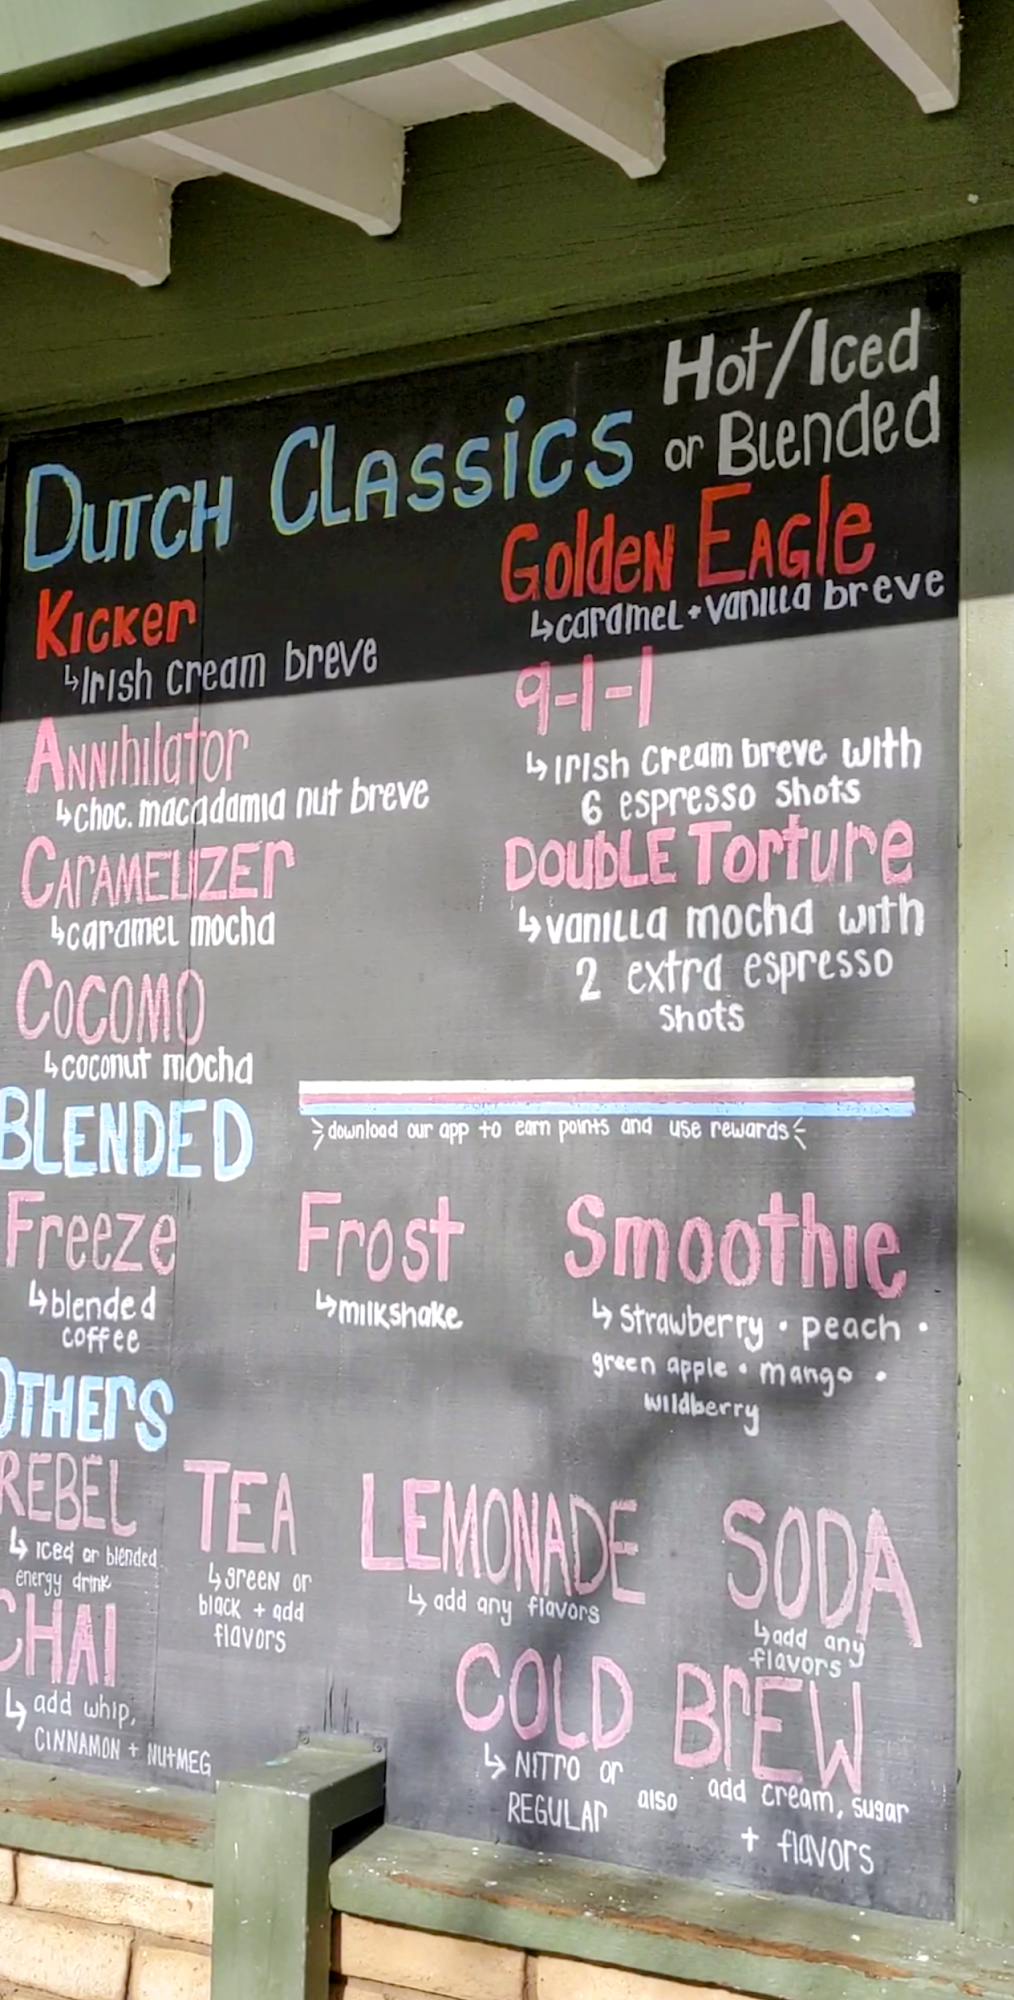 Dutch Classics Hot/Iced
or Blended
Kicker
↳Irish cream breve
Annihilator
↳choc. macadamia nut breve
Caramelizer
↳caramel mocha
Cocomo
↳coconut mocha
Golden Eagle
↳caramel • vanilla breve
9-1-1
↳Irish cream breve with
6 espresso shots
Double Torture
↳vanilla mocha with
2 extra espresso
shots
download our app to earn points and use rewards
BLENDED
Freeze
↳blended
coffee
Frost
↳milkshake
Smoothie
↳ Strawberry • peach •
green apple • mango •
wildberry
OTHERS
REBEL
↳ iced or blended
energy drink
TEA
↳green or
black + add
flavors
LEMONADE
↳ add any flavors
SODA
↳add any
flavors
CHAI
↳ add whip,
CINNAMON + NUTMEG
COLD BREW
↳ NITRO or
REGULAR
also
add cream, sugar
+ flavors